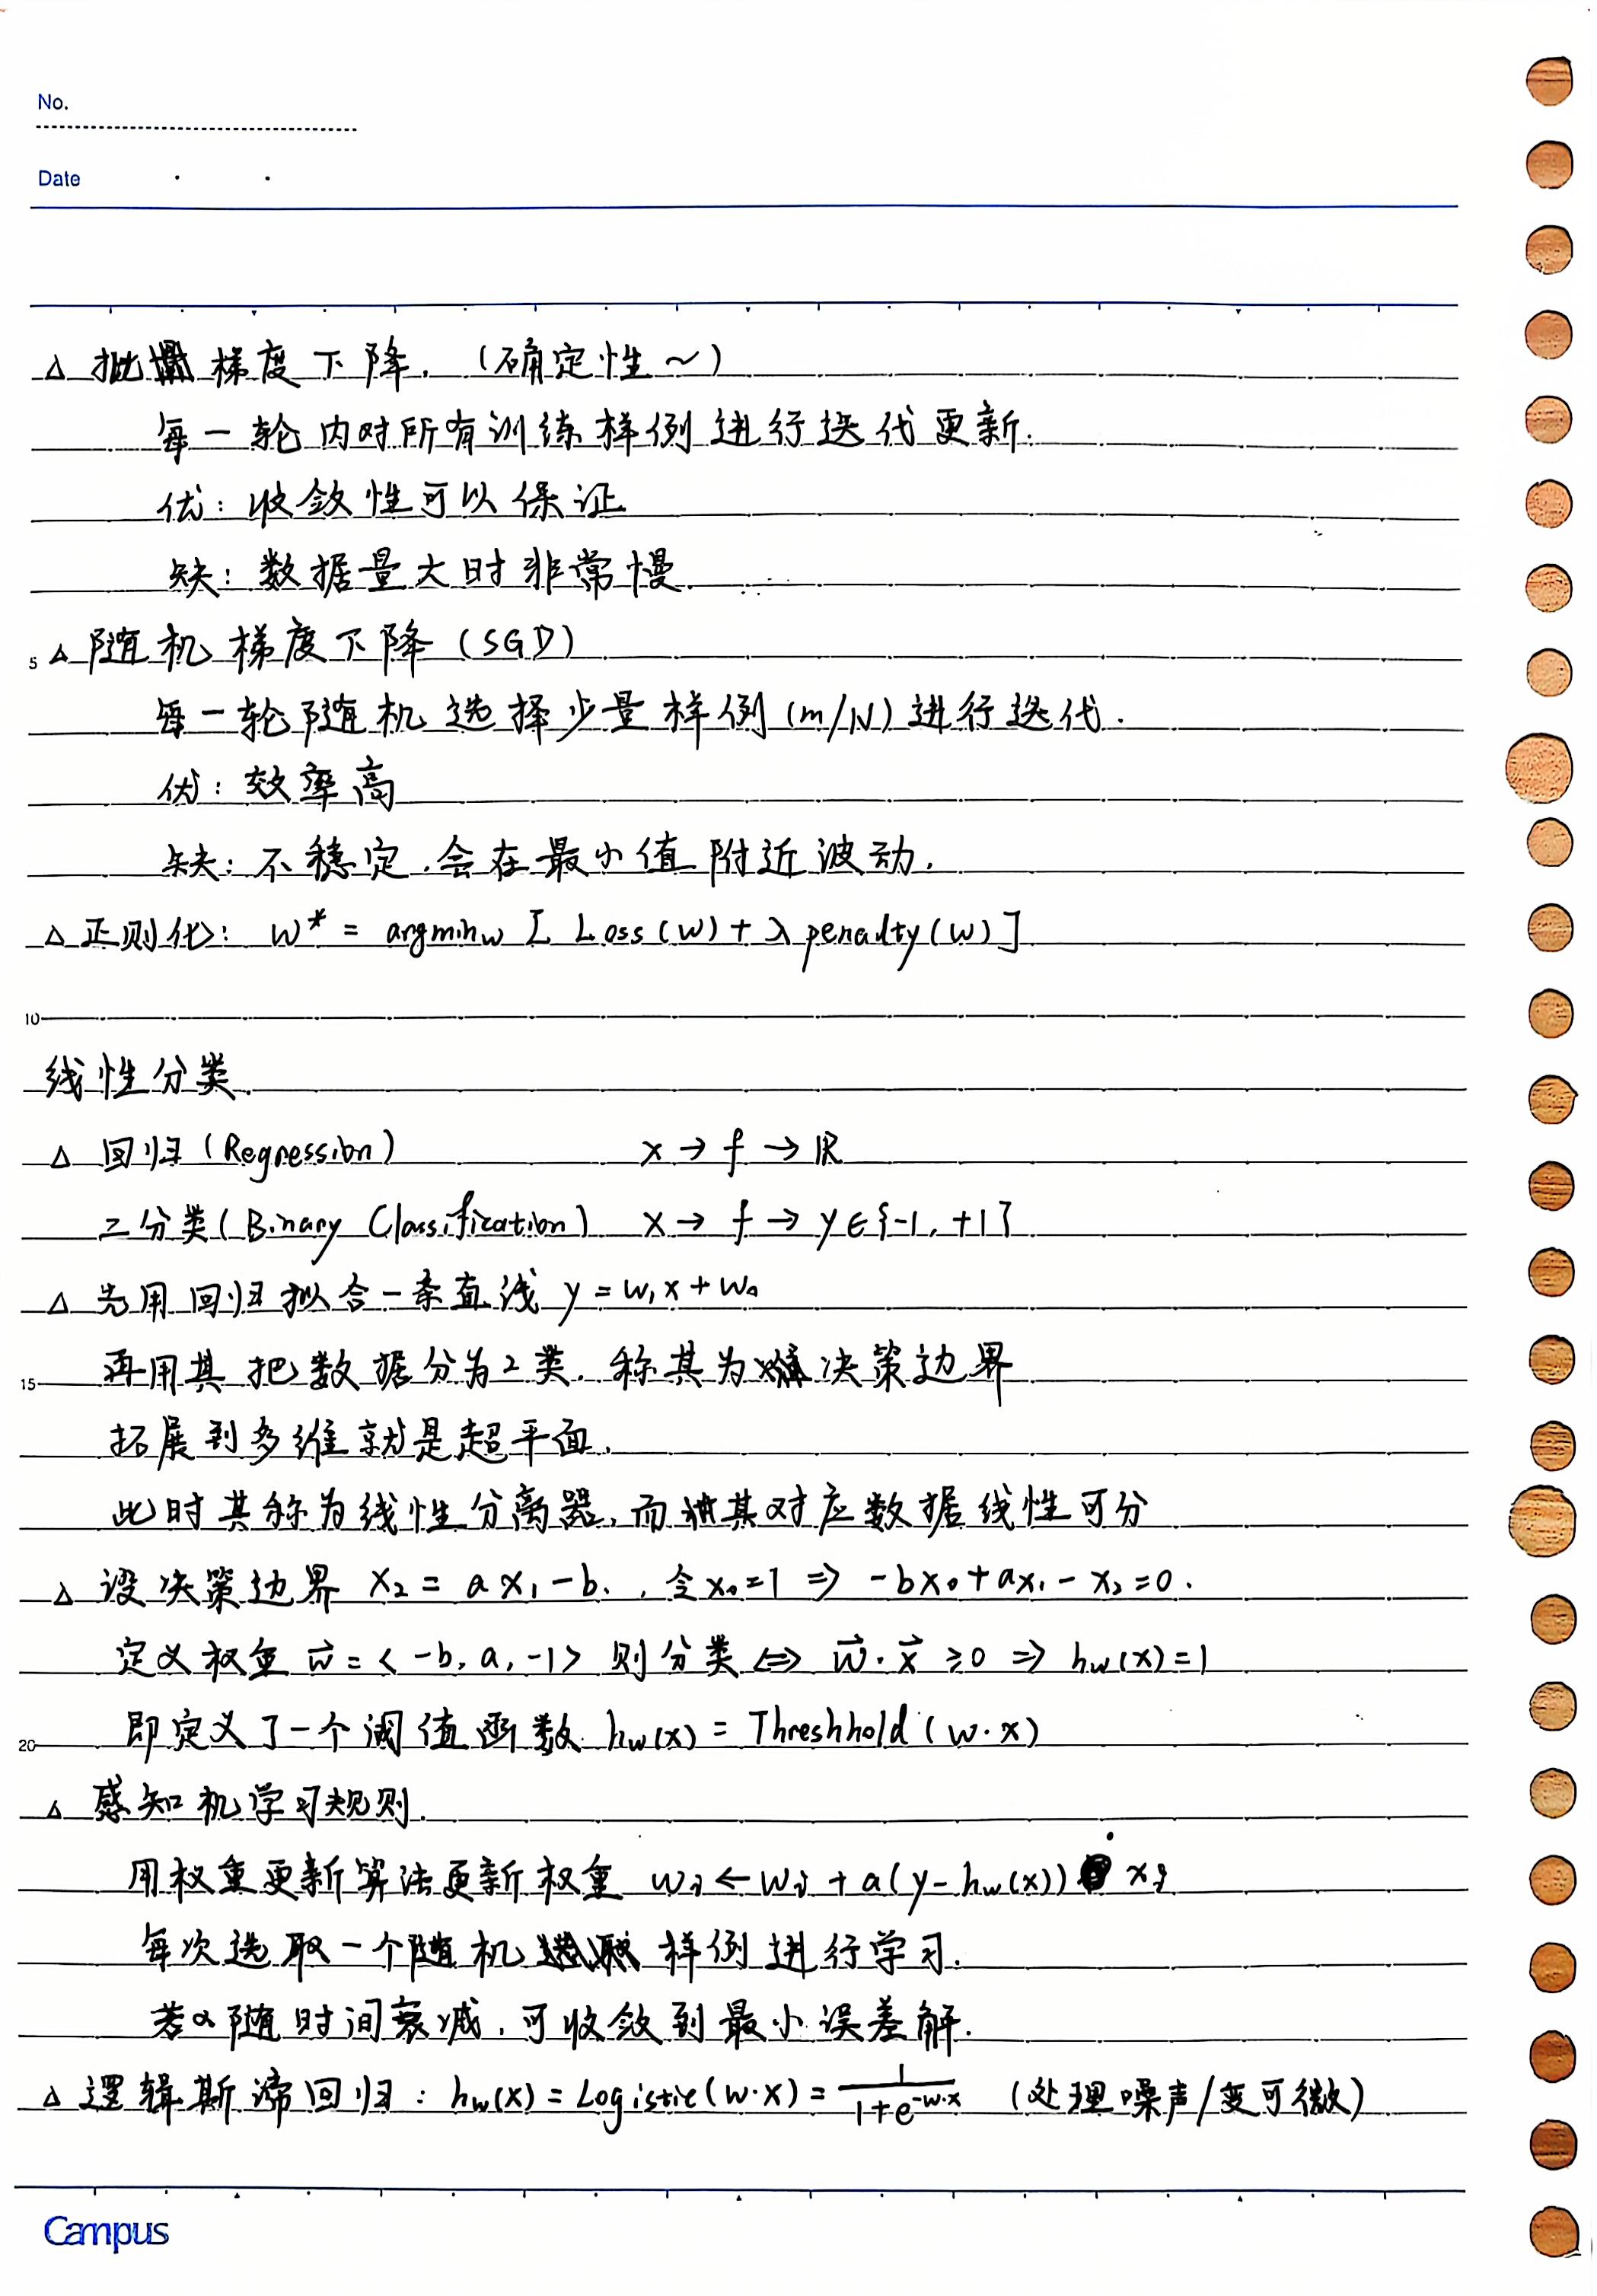 No.
Date
△ 批量梯度下降.（确定性～）
每一轮内对所有训练样例进行迭代更新.
优：收敛性可以保证
缺：数据量大时非常慢.
5 △ 随机梯度下降（SGD）
每一轮随机选择少量样例(m/N)进行迭代.
优：效率高
缺：不稳定.会在最小值附近波动.
△ 正则化： w* = argmin_w [ Loss(w) + λ penalty(w) ]
10
线性分类.
△ 回归(Regression) x → f → ℝ
二分类(Binary Classification) x → f → y∈{-1, +1}
△ 先用回归拟合一条直线 y = w₁x + w₀
15 再用其把数据分为2类.称其为决策边界
拓展到多维就是超平面.
此时其称为线性分离器,而其对应数据线性可分
△ 设决策边界 x₂ = ax₁ - b. , 令x₀=1 ⇒ -bx₀+ax₁-x₂=0.
定义权重 w⃗ = < -b, a, -1> 则分类 ⇔ w⃗·x⃗ ≥0 ⇒ h_w(x)=1
20 即定义了一个阈值函数 h_w(x) = Threshhold(w·x)
△ 感知机学习规则.
用权重更新算法更新权重 wᵢ ← wᵢ + a(y-h_w(x)) xᵢ
每次选取一个随机样例进行学习.
若α随时间衰减,可收敛到最小误差解.
△ 逻辑斯谛回归：h_w(x) = Logistic(w·x) = 1/(1+e^{-w·x}) (处理噪声/变可微)
Campus